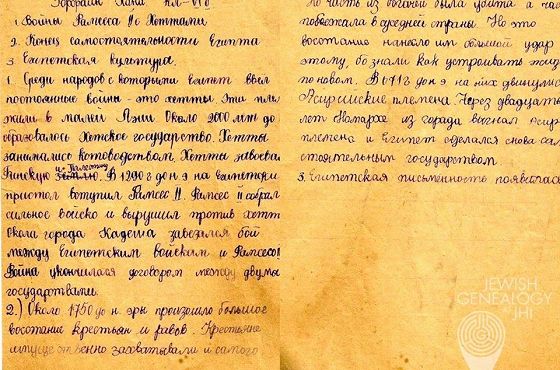 Хана кл-VIб
1. Войны Рамзеса II с Хеттами.
2. Конец самостоятельности Египта
3. Египетская культура.
1. Среди народов с которыми египет ввел
постоянные войны - это хетты. Эти пле
жили в малей Азии Около 2000 лет до
образовалось Хетское государство. Хетты
занимались котоводством. Хетты завоева
Финскую и Палестину. В 1290 г до н э на египетски
пристол вступил Рамсес II. Рамсес II собрал
сильное войско и вырушил против хетт
Окола города Кадеша завезался бой
между Египетским войскам и Рамсесо
Война укончилася договором между двумы
государствами.
2.) Около 1750 до н. эры произошло большое
восстание крестьян и рабов. Крестьяне
имуще ственно захватывали и самого
Но часть из богачей была убита а час
повезжала в средней страны. Но это
восстание нанесло им большой удар
этому, бо знали как устраивать жиз
по новом. В 671 г до н э на них двинулис
Асирийские племена Через двадцать
лет Псмарах из города выгнал Асир
племена и Египет сделался снова сам
стоятельным государством.
3. Египетская письменность появилась
JEWISH
GENEALOGY
JHI